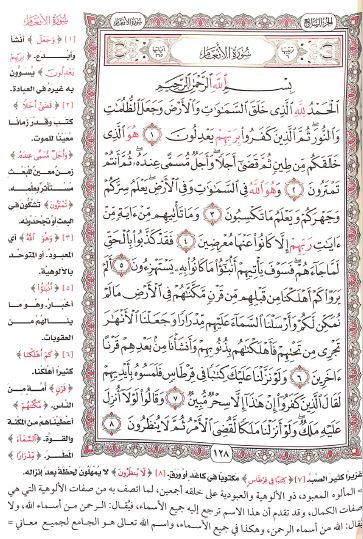 الجزء السابع
سُورَةُ الأَنْعَامِ
سُورَةُ الأَنْعَامِ
سُورَةُ الأَنْعَامِ
بِسْمِ اللَّهِ الرَّحْمَٰنِ الرَّحِيمِ
الْحَمْدُ لِلَّهِ الَّذِى خَلَقَ السَّمَٰوَٰتِ وَالْأَرْضَ وَجَعَلَ الظُّلُمَٰتِ
وَالنُّورَ ثُمَّ الَّذِينَ كَفَرُوا بِرَبِّهِمْ يَعْدِلُونَ ١ هُوَ الَّذِى
خَلَقَكُم مِّن طِينٍ ثُمَّ قَضَىٰٓ أَجَلًا وَأَجَلٌ مُّسَمًّى عِندَهُۥ ثُمَّ أَنتُمْ
تَمْتَرُونَ ٢ وَهُوَ اللَّهُ فِى السَّمَٰوَٰتِ وَفِى الْأَرْضِ يَعْلَمُ سِرَّكُمْ
وَجَهْرَكُمْ وَيَعْلَمُ مَا تَكْسِبُونَ ٣ وَمَا تَأْتِيهِم مِّنْ ءَايَةٍ مِّنْ
ءَايَٰتِ رَبِّهِمْ إِلَّا كَانُوا عَنْهَا مُعْرِضِينَ ٤ فَقَدْ كَذَّبُوا بِالْحَقِّ
لَمَّا جَآءَهُمْ فَسَوْفَ يَأْتِيهِمْ أَنۢبَٰٓؤُا مَا كَانُوا بِهِۦ يَسْتَهْزِءُونَ ٥ أَلَمْ
يَرَوْا كَمْ أَهْلَكْنَا مِن قَبْلِهِم مِّن قَرْنٍ مَّكَّنَّٰهُمْ فِى الْأَرْضِ مَا لَمْ
نُمَكِّن لَّكُمْ وَأَرْسَلْنَا السَّمَآءَ عَلَيْهِم مِّدْرَارًا وَجَعَلْنَا الْأَنْهَٰرَ
تَجْرِى مِن تَحْتِهِمْ فَأَهْلَكْنَٰهُم بِذُنُوبِهِمْ وَأَنشَأْنَا مِنۢ بَعْدِهِمْ قَرْنًا
ءَاخَرِينَ ٦ وَلَوْ نَزَّلْنَا عَلَيْكَ كِتَٰبًا فِى قِرْطَاسٍ فَلَمَسُوهُ بِأَيْدِيهِمْ
لَقَالَ الَّذِينَ كَفَرُوٓا إِنْ هَٰذَآ إِلَّا سِحْرٌ مُّبِينٌ ٧ وَقَالُوا لَوْلَآ أُنزِلَ
عَلَيْهِ مَلَكٌ وَلَوْ أَنزَلْنَا مَلَكًا لَّقُضِىَ الْأَمْرُ ثُمَّ لَا يُنظَرُونَ ٨
١٢٨
[١] ﴿وَجَعَلَ﴾ أنشأ
وأبدع. ﴿بِرَبِّهِمْ
يَعْدِلُونَ﴾ يسوون
به غيره في العبادة.
[٢] ﴿قَضَىٰ أَجَلًا﴾
كتب وقدر زمانا
معينًا للموت.
﴿وَأَجَلٌ مُّسَمًّى عِندَهُ﴾
زمن معين للبعث
مستأثر بعلمه.
﴿تَمْتَرُونَ﴾ تشكون في
البعث أو تجحدونه.
[٣] ﴿وَهُوَ اللَّهُ﴾ أي
المعبود، أو المتوحد
بالألوهية.
[٥] ﴿أَنۢبَٰٓؤُا﴾
أخبار، وهو ما
ينالهم من
العقوبات.
[٦] ﴿كَمْ أَهْلَكْنَا﴾
كثيرا أهلكنا.
﴿قَرْنٍ﴾ أمة من
الناس.
﴿مَّكَّنَّٰهُمْ﴾
أعطيناهم من المكنة
والقوة. ﴿السَّمَاءَ﴾
المطر. ﴿مِدْرَارًا﴾
غزيرا كثير الصب. [٧] ﴿كِتَٰبًا فِى قِرْطَاسٍ﴾ مكتوبا في كاغد أو ورق. [٨] ﴿لَا يُنظَرُونَ﴾ لا يمهلون لحظة بعد إنزاله.
= المألوه المعبود، ذو الألوهية والعبودية على خلقه أجمعين، لما اتصف به من صفات الألوهية التي هي
صفات الكمال، وقد تقدم أن هذا الاسم ترجع إليه جميع الأسماء، فيُقال: الرحمن من أسماء الله، ولا
يُقال: الله من أسماء الرحمن، وهكذا في جميع الأسماء، واسم الله تعالى هو الجامع لجميع معاني =